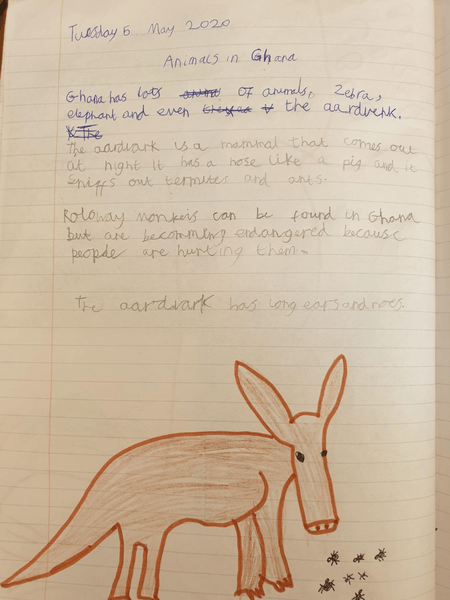 Tuesday 5 May 2020
Animals in Ghana
Ghana has lots of animals, Zebra,
elephant and even the aardverk.
The aardvark is a mammal that comes out
at night it has a nose like a pig and it
sniffs out termites and ants.
Roloway monkers can be found in Ghana
but are becomming endangered because
people are hurting them.
The aardvark has long ears and